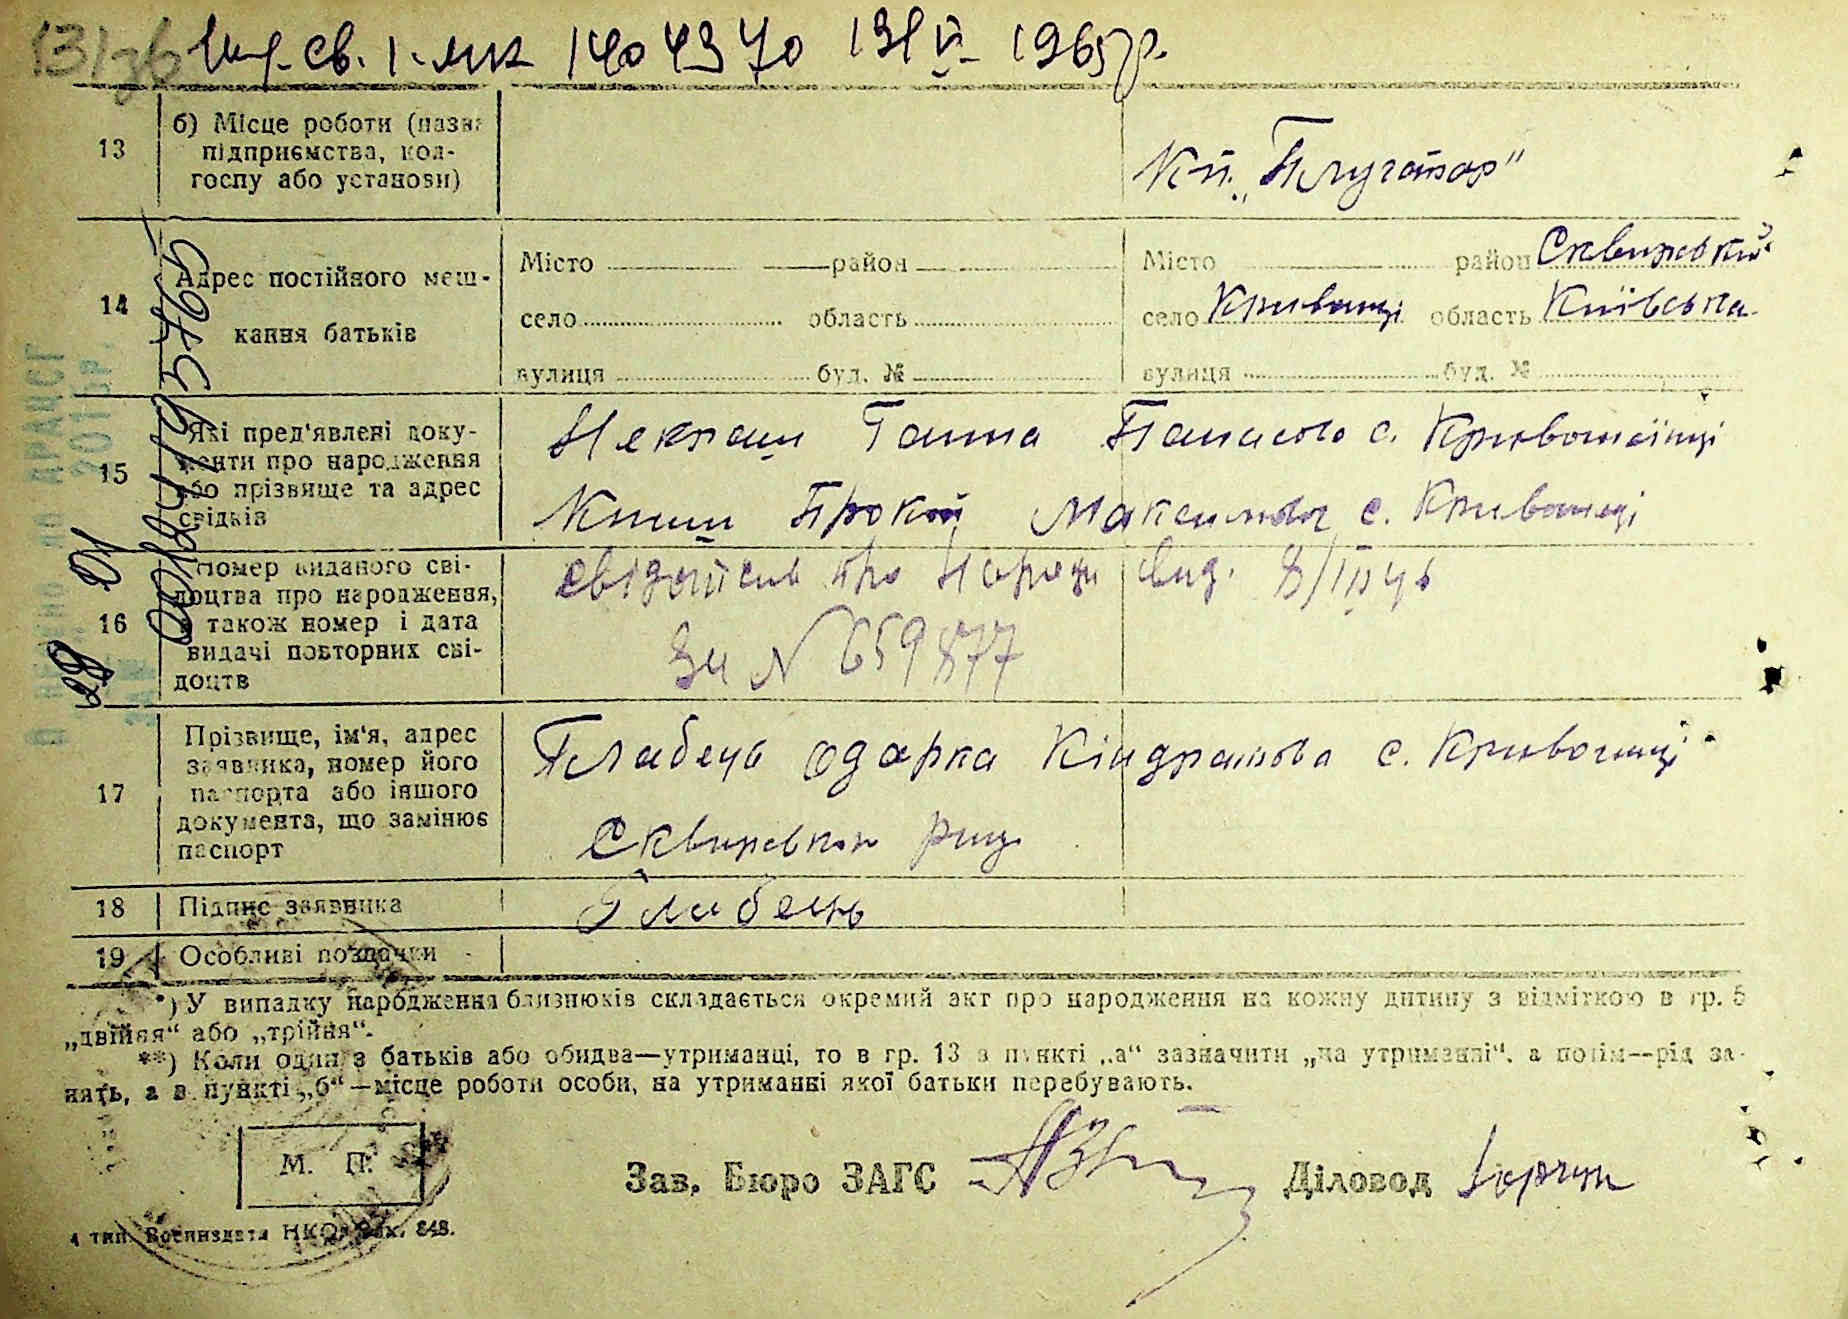 св. 1404370 1965 р.
13
б) Місце роботи (назва
підприємства, кол-
госпу або установи)
Кп. „Плугатар"
14
Адрес постійного меш-
кання батьків
Місто район
село область
вулиця буд. №
Місто район Сквирський
село Кривошиї область Київська
вулиця буд. №
15
Які пред'явлені доку-
менти про народження
або прізвище та адрес
свідків
Некраш Ганна Панасова с. Кривошиїнці
Книш Прокіп Максимович с. Кривошиїнці
16
Номер виданого сві-
доцтва про народження,
а також номер і дата
видачі повторних сві-
доцтв
свідоцтво про народж вид. 8/III
За № 659877
17
Прізвище, ім'я, адрес
заявника, номер його
паспорта або іншого
документа, що замінює
паспорт
Глабець Одарка Кіндратова с. Кривошиїнці
Сквирського р-ну
18
Підпис заявника
Глабець
19
Особливі позначки
*) У випадку народження близнюків складається окремий акт про народження на кожну дитину з відміткою в гр. 5
„двійня“ або „трійня“.
**) Коли один з батьків або обидва—утриманці, то в гр. 13 в пункті „а“ зазначити „на утриманні“, а потім—рід за-
нять, а в пункті „б“—місце роботи особи, на утриманні якої батьки перебувають.
М. П.
Зав. Бюро ЗАГС Діловод
4 тип. Воениздата НКО. Зак. 848.